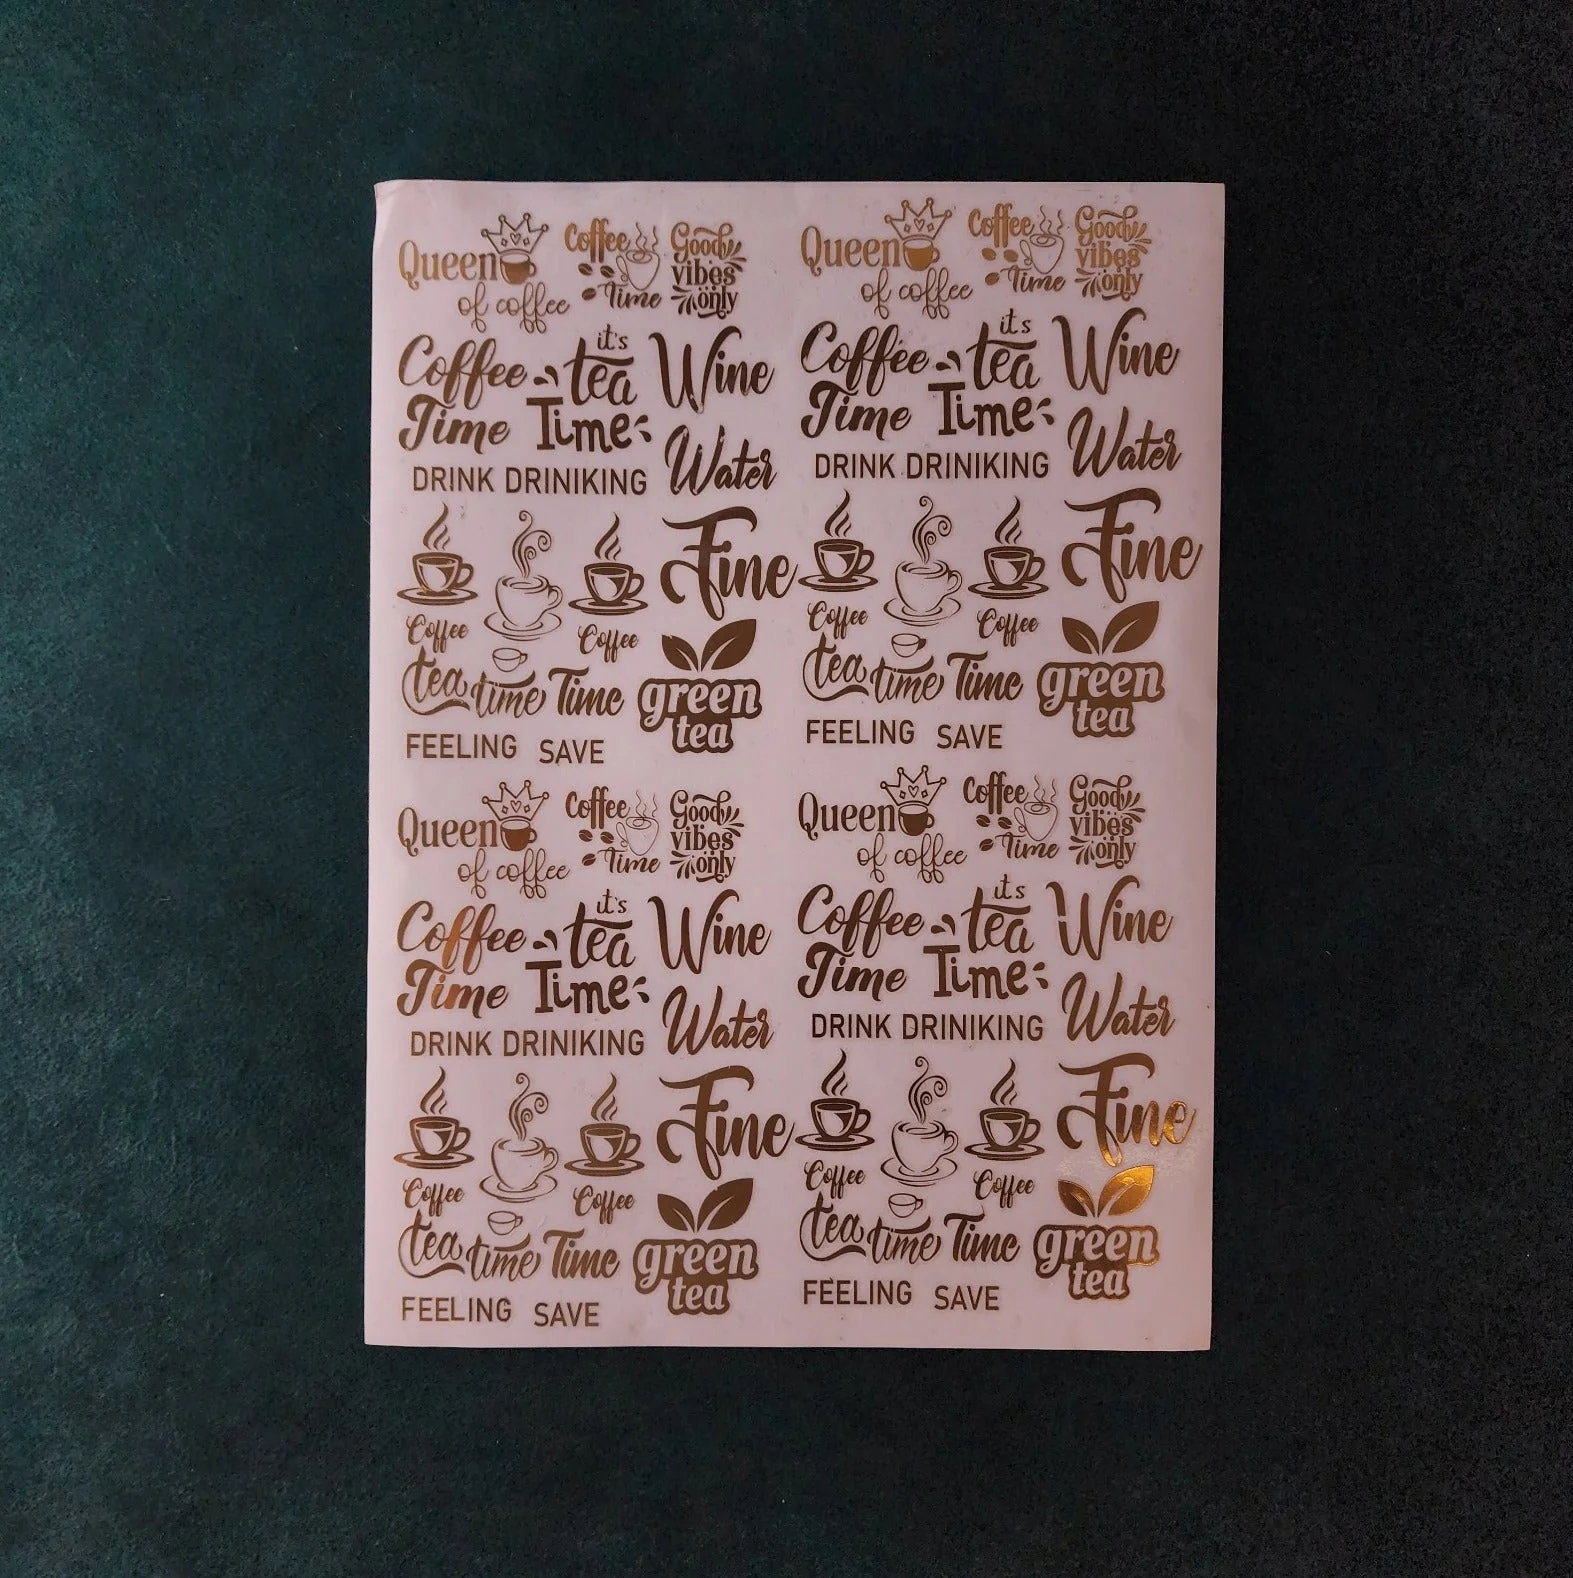 Queen
of coffee
Coffee
Time
Good
vibes
only
Queen
of coffee
Coffee
Time
Good
vibes
only
Coffee
Time
it's
tea
Time
Wine
Water
DRINK DRINIKING
Coffee
Time
it's
tea
Time
Wine
Water
DRINK DRINIKING
Fine
Coffee
Coffee
tea time Time
green
tea
FEELING SAVE
Fine
Coffee
Coffee
tea time Time
green
tea
FEELING SAVE
Queen
of coffee
Coffee
Time
Good
vibes
only
Queen
of coffee
Coffee
Time
Good
vibes
only
Coffee
Time
it's
tea
Time
Wine
Water
DRINK DRINIKING
Coffee
Time
it's
tea
Time
Wine
Water
DRINK DRINIKING
Fine
Coffee
Coffee
tea time Time
green
tea
FEELING SAVE
Fine
Coffee
Coffee
tea time Time
green
tea
FEELING SAVE